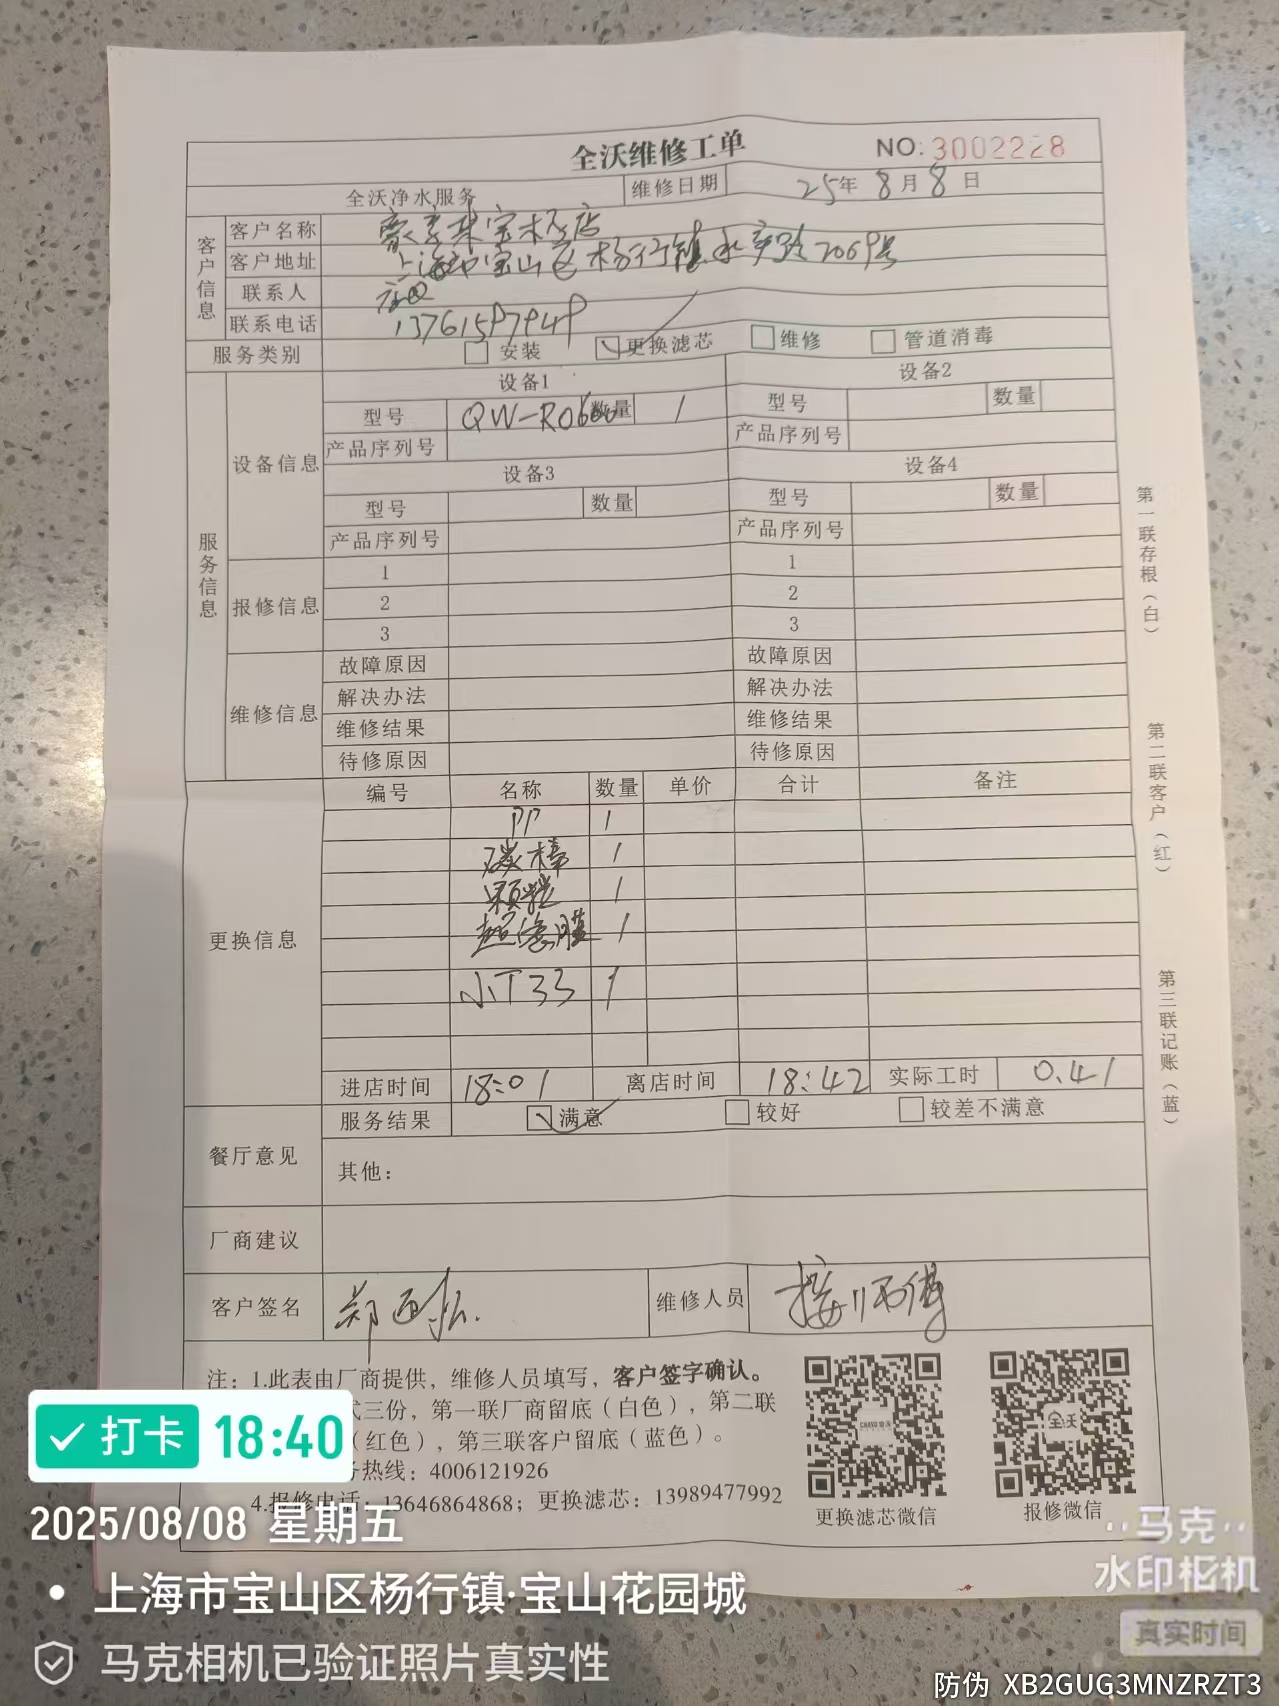 全沃维修工单 NO: 3002228
全沃净水服务 维修日期 25年 8月 8日
客户信息
客户名称 宝杨店
客户地址 上海市宝山区杨行镇水产路2069号
联系人 店面
联系电话 13761597949
服务类别 安装 更换滤芯 维修 管道消毒
服务信息
设备信息
设备1 设备2
型号 QW-R0600 数量 1 型号 数量
产品序列号 产品序列号
设备3 设备4
型号 数量 型号 数量
产品序列号 产品序列号
报修信息
1 1
2 2
3 3
维修信息
故障原因 故障原因
解决办法 解决办法
维修结果 维修结果
待修原因 待修原因
更换信息
编号 名称 数量 单价 合计 备注
PP 1
碳棒 1
颗粒 1
超滤膜 1
小T33 1
进店时间 18:01 离店时间 18:42 实际工时 0.41
餐厅意见
服务结果 满意 较好 较差不满意
其他：
厂商建议
客户签名 郑 维修人员 师傅
注：1.此表由厂商提供，维修人员填写，客户签字确认。
式三份，第一联厂商留底（白色），第二联
（红色），第三联客户留底（蓝色）。
务热线：4006121926
4.报修电话：13646864868；更换滤芯：13989477992
更换滤芯微信 报修微信
全沃
第一联存根（白）
第二联客户（红）
第三联记账（蓝）
打卡 18:40
2025/08/08 星期五
上海市宝山区杨行镇·宝山花园城
马克相机已验证照片真实性
马克
水印相机
真实时间
防伪 XB2GUG3MNZRZT3